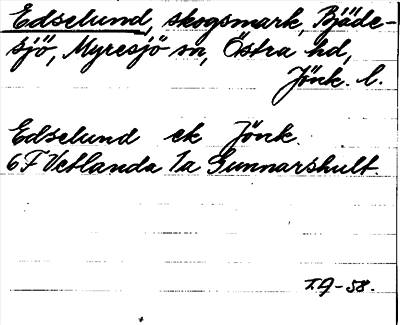 Edselund, skogsmark, Bjäde-
sjö, Myresjö sn, Östra hd,
Jönk. l.
Edselund ek Jönk.
6F Vetlanda 1a Gunnarshult.
T.A-58.